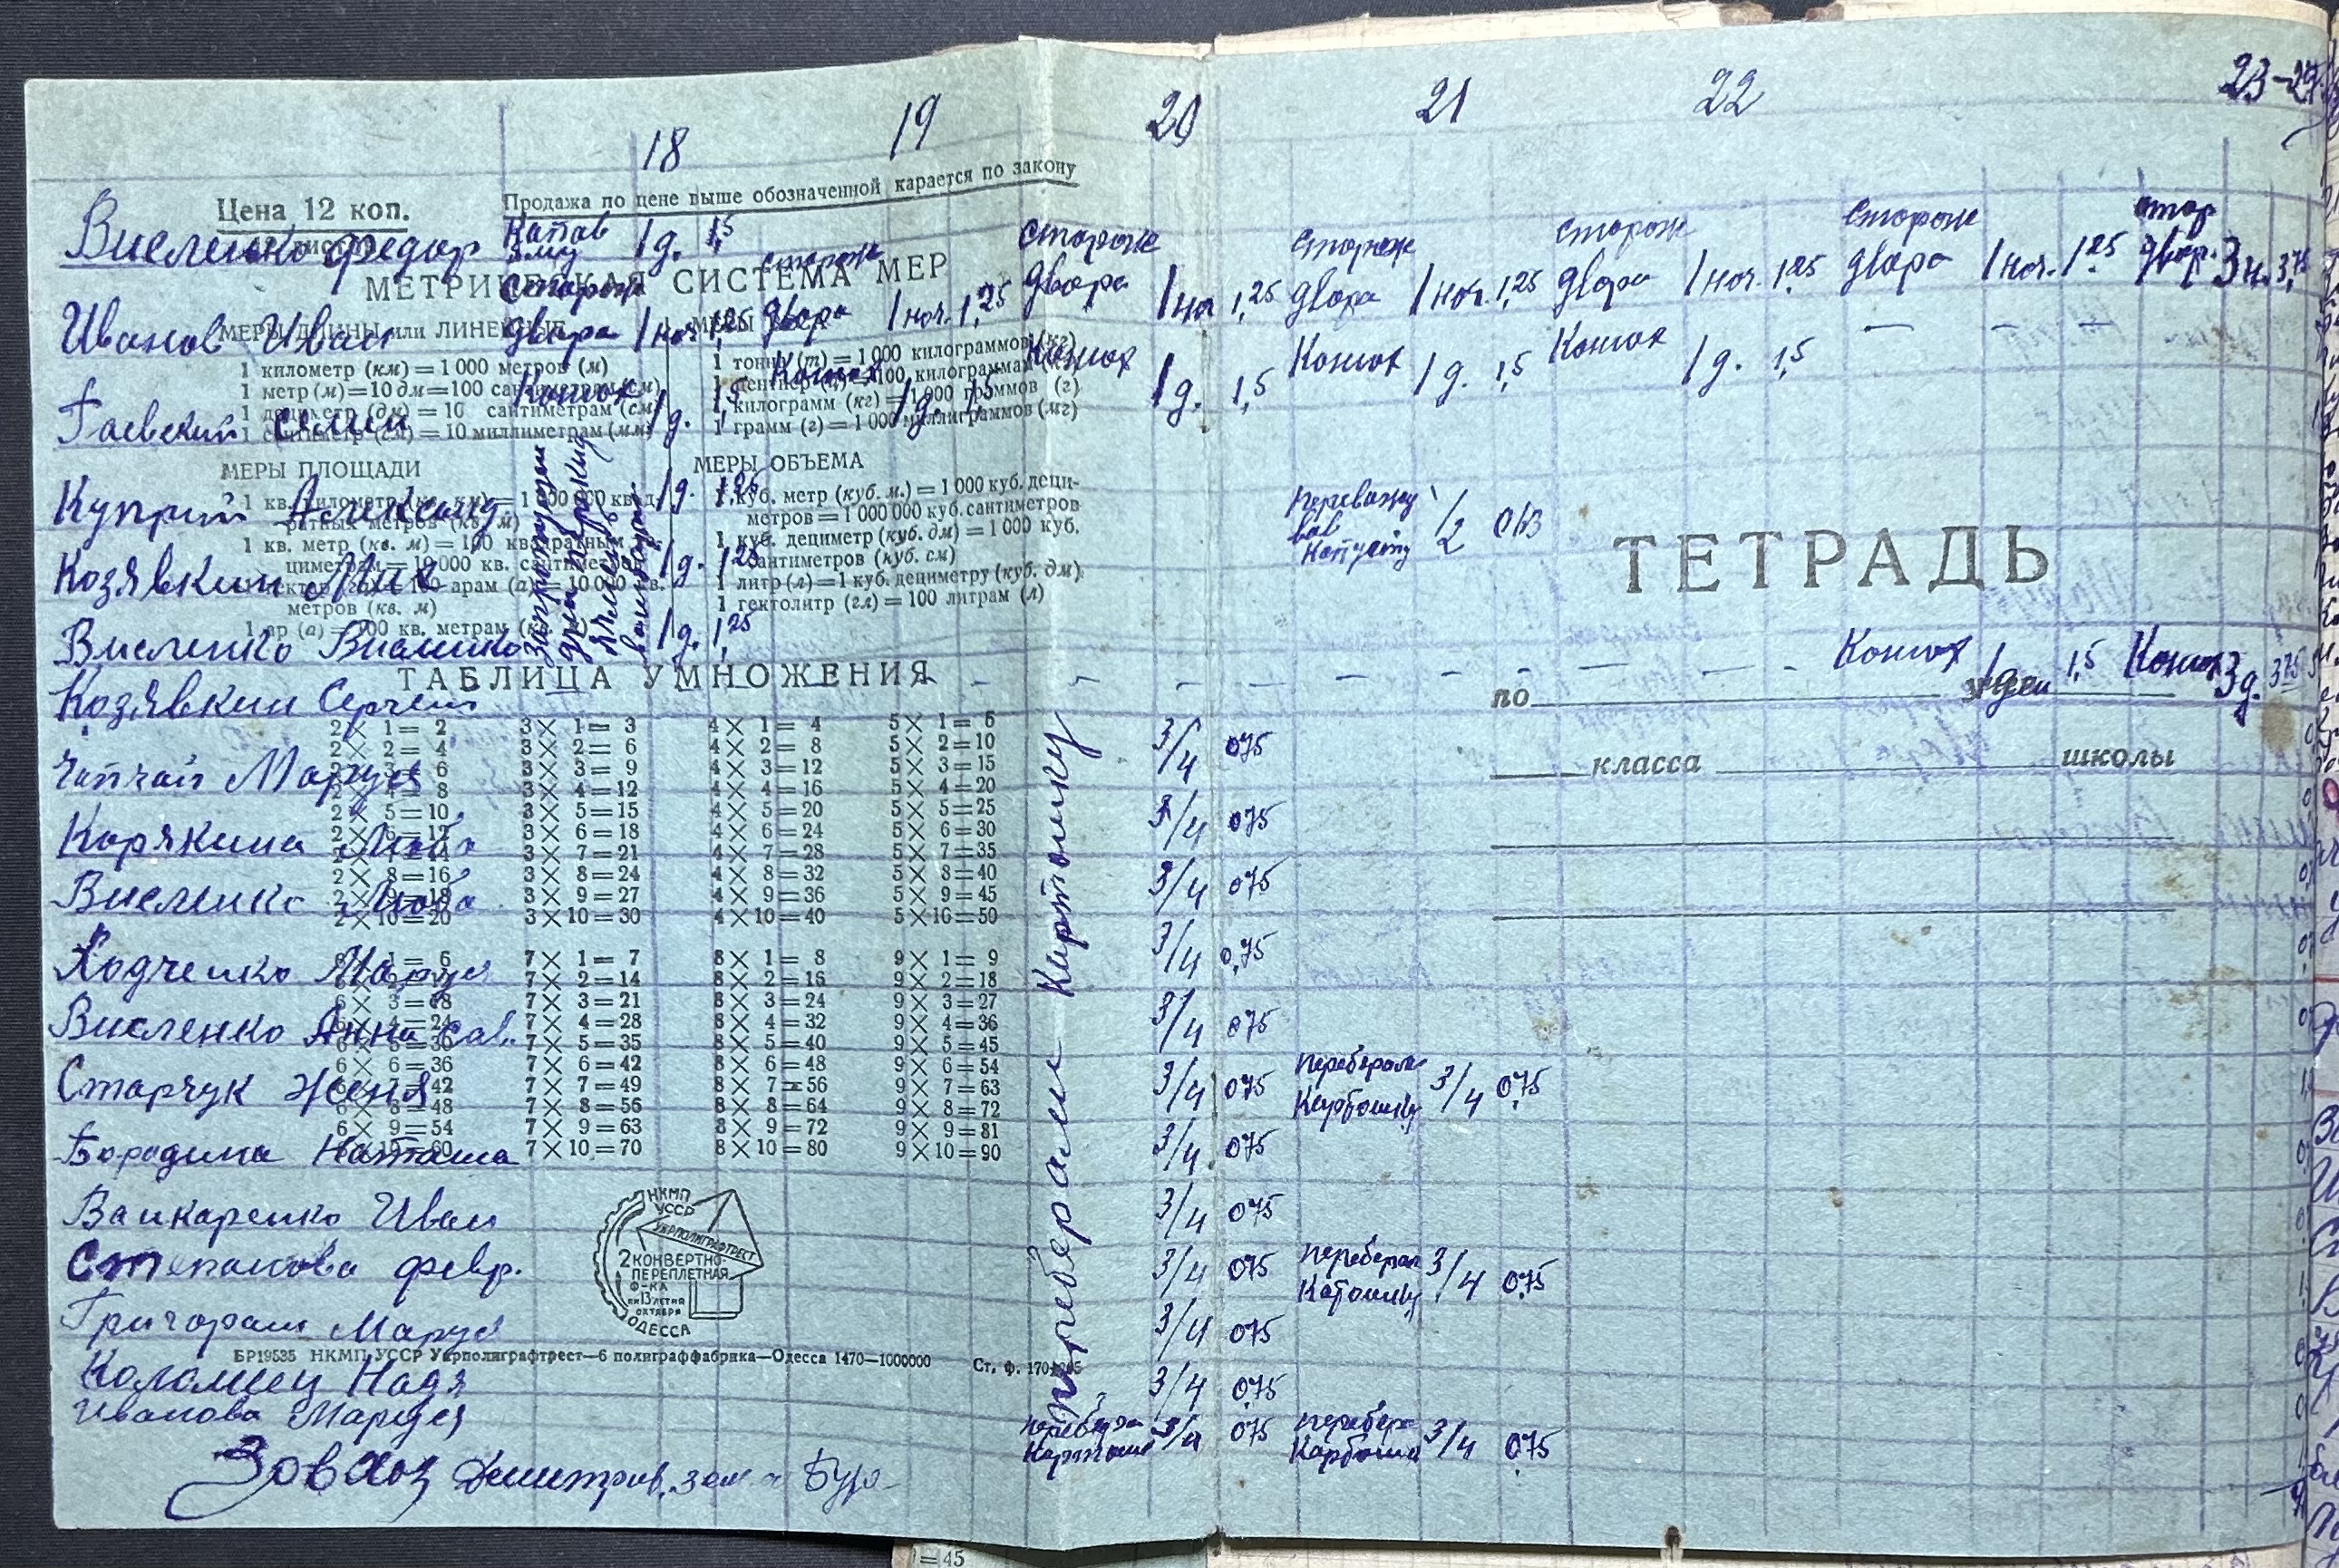 18 19 20 21 22 23-27
Продажа по цене выше обозначенной карается по закону
Цена 12 коп.
МЕТРИЧЕСКАЯ СИСТЕМА МЕР
МЕРЫ ДЛИНЫ или ЛИНЕЙНЫЕ
1 километр (км) = 1 000 метров (м)
1 метр (м) = 10 дм = 100 сантиметрам (см)
1 дециметр (дм) = 10 сантиметрам (см)
1 сантиметр (см) = 10 миллиметрам (мм)
1 тонна (т) = 1 000 килограммов (кг)
1 центнер (ц) = 100 килограммам (кг)
1 килограмм (кг) = 1 000 граммов (г)
1 грамм (г) = 1 000 миллиграммов (мг)
МЕРЫ ПЛОЩАДИ
1 кв. километр (кв. км) = 1 000 000 квад-
ратных метров (кв. м)
1 кв. метр (кв. м) = 100 квадратным де-
циметрам = 10 000 кв. сантиметров
1 гектар (га) = 100 арам (а) = 10 000 кв.
метров (кв. м)
1 ар (а) = 100 кв. метрам (кв. м)
МЕРЫ ОБЪЕМА
1 куб. метр (куб. м.) = 1 000 куб. деци-
метров = 1 000 000 куб. сантиметров
1 куб. дециметр (куб. дм) = 1 000 куб.
сантиметров (куб. см)
1 литр (л) = 1 куб. дециметру (куб. дм)
1 гектолитр (гл) = 100 литрам (л)
ТАБЛИЦА УМНОЖЕНИЯ
2 × 1 = 2 3 × 1 = 3 4 × 1 = 4 5 × 1 = 5
2 × 2 = 4 3 × 2 = 6 4 × 2 = 8 5 × 2 = 10
2 × 3 = 6 3 × 3 = 9 4 × 3 = 12 5 × 3 = 15
2 × 4 = 8 3 × 4 = 12 4 × 4 = 16 5 × 4 = 20
2 × 5 = 10 3 × 5 = 15 4 × 5 = 20 5 × 5 = 25
2 × 6 = 12 3 × 6 = 18 4 × 6 = 24 5 × 6 = 30
2 × 7 = 14 3 × 7 = 21 4 × 7 = 28 5 × 7 = 35
2 × 8 = 16 3 × 8 = 24 4 × 8 = 32 5 × 8 = 40
2 × 9 = 18 3 × 9 = 27 4 × 9 = 36 5 × 9 = 45
2 × 10 = 20 3 × 10 = 30 4 × 10 = 40 5 × 10 = 50
6 × 1 = 6 7 × 1 = 7 8 × 1 = 8 9 × 1 = 9
6 × 2 = 12 7 × 2 = 14 8 × 2 = 16 9 × 2 = 18
6 × 3 = 18 7 × 3 = 21 8 × 3 = 24 9 × 3 = 27
6 × 4 = 24 7 × 4 = 28 8 × 4 = 32 9 × 4 = 36
6 × 5 = 30 7 × 5 = 35 8 × 5 = 40 9 × 5 = 45
6 × 6 = 36 7 × 6 = 42 8 × 6 = 48 9 × 6 = 54
6 × 7 = 42 7 × 7 = 49 8 × 7 = 56 9 × 7 = 63
6 × 8 = 48 7 × 8 = 56 8 × 8 = 64 9 × 8 = 72
6 × 9 = 54 7 × 9 = 63 8 × 9 = 72 9 × 9 = 81
6 × 10 = 60 7 × 10 = 70 8 × 10 = 80 9 × 10 = 90
НКМП
УССР
УКРПОЛИГРАФТРЕСТ
2 КОНВЕРТНО-
ПЕРЕПЛЕТНАЯ
Ф-КА
им 13 ЛЕТИЯ
ОКТЯБРЯ
ОДЕССА
БР19535 НКМП УССР Укрполиграфтрест—6 полиграффабрика—Одесса 1470—1000000
ТЕТРАДЬ
по
класса школы
Висленко федор 1 д. 1,5
сторож сторож сторож сторож сторож стор
Иванов Иван двора 1 ноч. 1,25 двора 1 ноч. 1,25 двора 1 ноч 1,25 двора 1 ноч. 1,25 двора 1 ноч. 1,25 двора 1 ноч. 1,25 двор. 3 н. 3,75
Гаевский Семен Конюх 1 д. 1,5 Конюх 1 д. 1,5 Конюх 1 д. 1,5 Конюх 1 д. 1,5 Конюх 1 д. 1,5
Куприй Александ. 1 д. 1,25 1/2
Козявкин Мик 1 д. 1,25
Висленко 1 д. 1,25
Козявкин Сергей Конюх 1 ден 1,5 Конюх 3 д. 3,75
Чапчай Маруся 3/4 075
Карякина Люба 3/4 075
Висленко Люба 3/4 075
Ходченко Маруся 3/4 0,75
Висленко Анна Сав. 3/4 075
Старчук Женя 3/4 075 переберала Картошку 3/4 0,75
Бородина Наташа 3/4 075
Ванкаренко Иван 3/4 075
Степанова февр. 3/4 075 переберал 3/4 0,75
Григораш Маруся 3/4 075
Коломиец Надя 3/4 0,75
Иванова Маруся 3/4 075 перебер 3/4 0,75
переберали Картошку
Зав Хоз